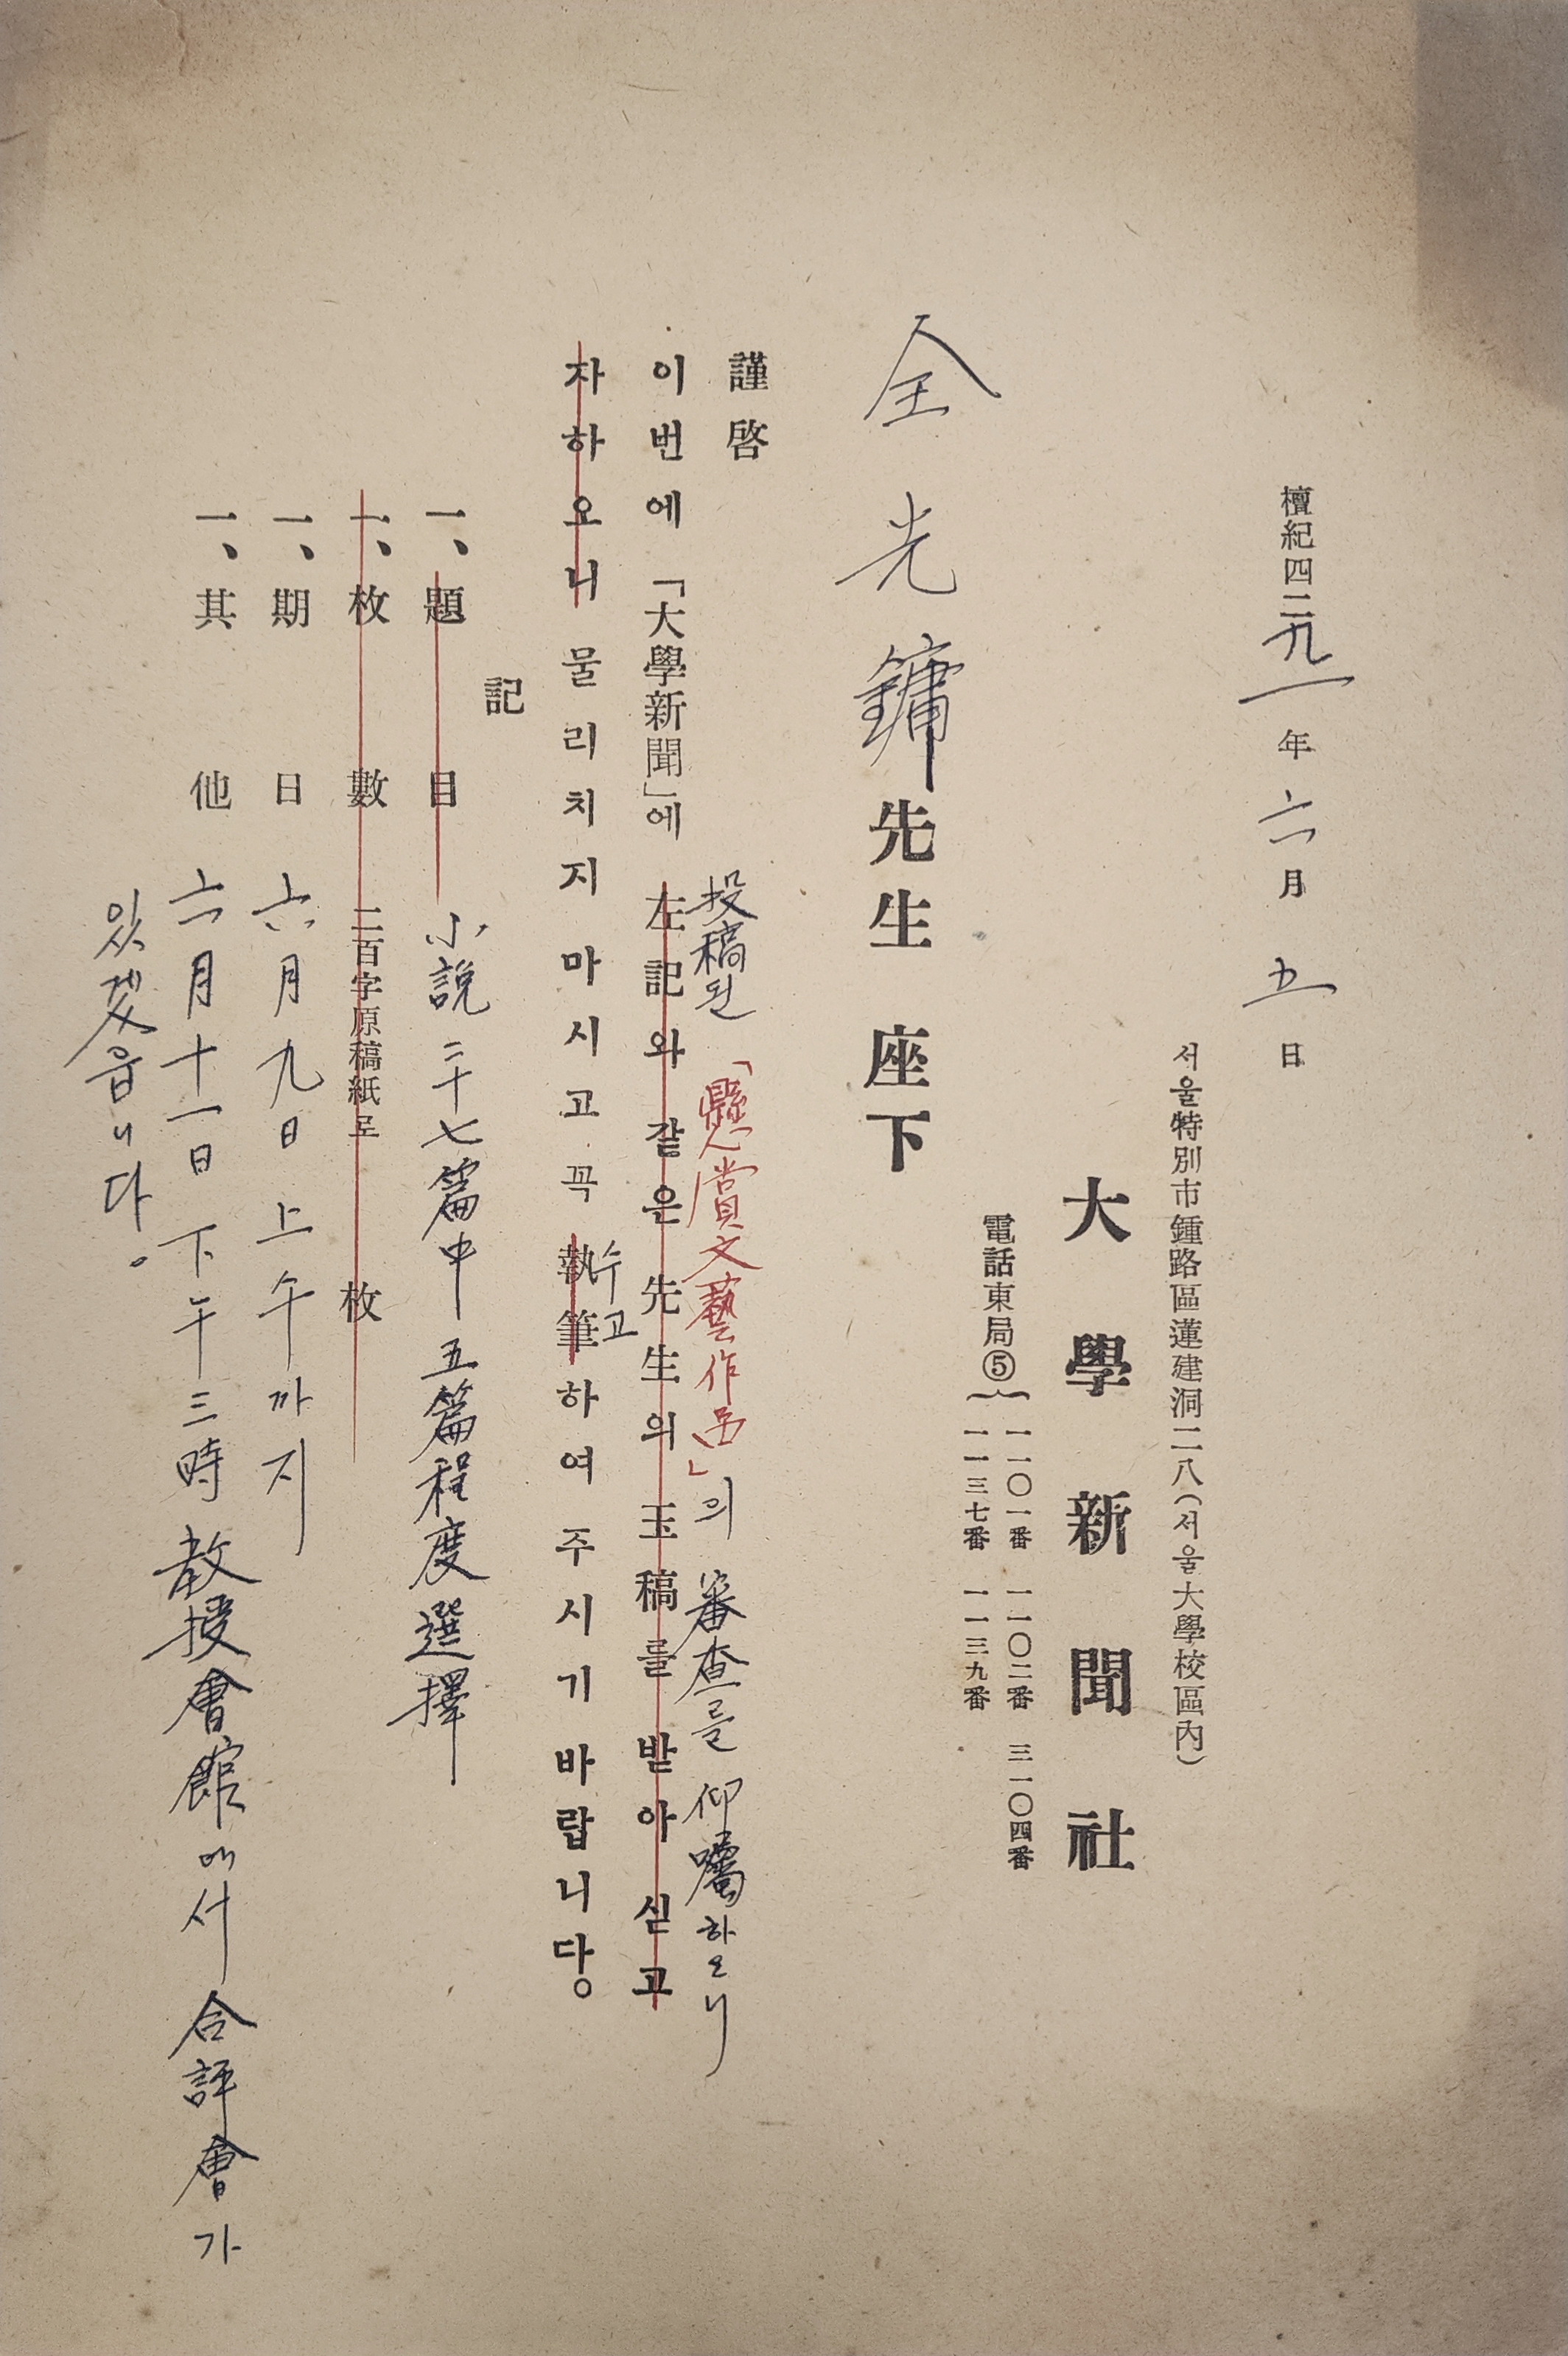 檀紀四二九一年 六月 五日
서울特別市鍾路區蓮建洞二八(서울大學校區內)
大學新聞社
電話東局⑤ 一一〇一番 一一〇二番 三一〇四番
一一三七番 一一三九番
全光鏞先生 座下
謹啓
投稿된 「懸賞文藝作品」의 審査를 仰囑하오니
이번에 「大學新聞」에 左記와 같은 先生의 玉稿를 받아 싣고
수고
자하오니 물리치지 마시고 꼭 執筆하여 주시기 바랍니다。
記
一、題目 小說 二十七篇中 五篇程度 選擇
一、枚數 二百字原稿紙로 枚
一、期日 六月九日 上午까지
一、其他 六月十一日 下午三時 敎授會館에서 合評會가
있겠읍니다。